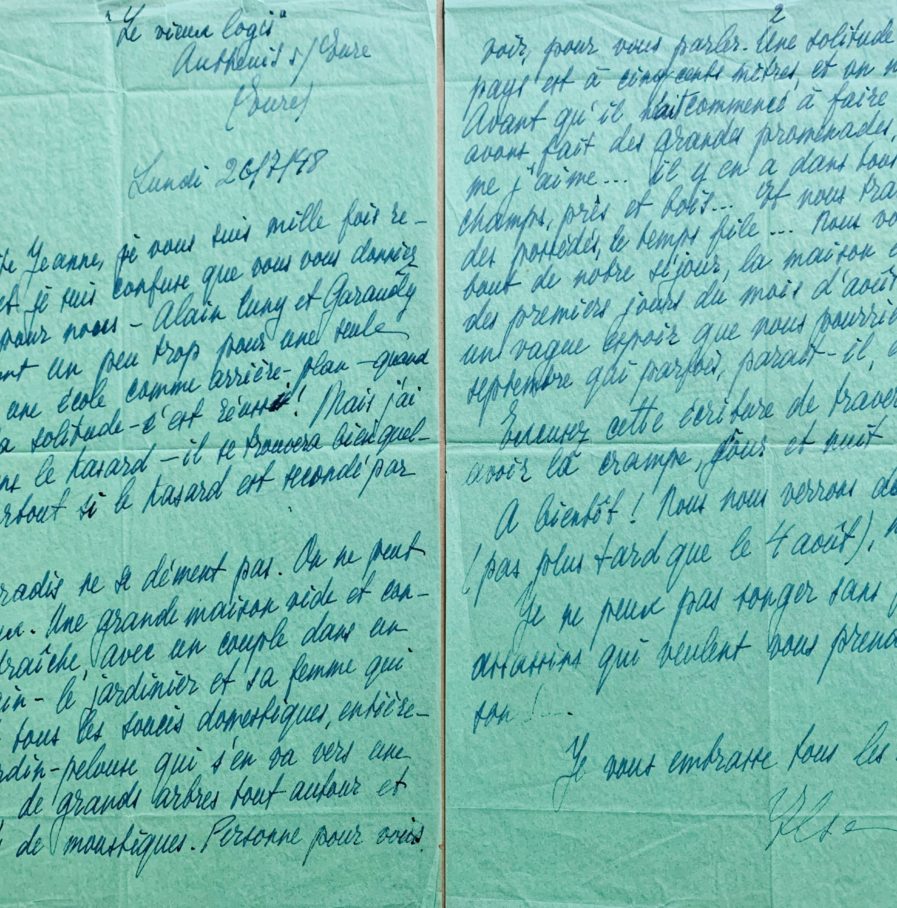 "Le vieux logis"
Autheuis s/Eure
(Eure)
Lundi 26/7/48
Jeanne, je vous suis mille fois re-
et je suis confuse que vous vous donniez
pour nous - Alain Cuny et Garaudy
un peu trop pour une seule
une école comme arrière-plan - quand
solitude - c'est réussi! Mais j'ai
le hasard - il se trouvera bien quel-
surtout si le hasard est secondé par
paradis ne se dément pas. On ne peut
Une grande maison vide et con-
fraîche, avec un couple dans un
- le jardinier et sa femme qui
tous les soucis domestiques, entière-
jardin-pelouse qui s'en va vers une
de grands arbres tout autour et
de moustiques. Personne pour vous
2
voir, pour vous parler. Une solitude
pays est à cinq cents mètres et on n
Avant qu'il n'ait commencé à faire
avons fait des grandes promenades,
me j'aime... il y en a dans tous
champs, près et bois... Et nous tra
des possédés, le temps file... Nous vo
bout de notre séjour, la maison e
des premiers jours du mois d'août
un vague espoir que nous pourrie
septembre qui parfois, parait-il, e
Excusez cette écriture de traver
avoir la crampe, jour et nuit
A bientôt! Nous nous verrons de
(pas plus tard que le 4 août),
Je ne peux pas songer sans
assassins qui veulent vous prend
son!...
Je vous embrasse tous les
Elsa